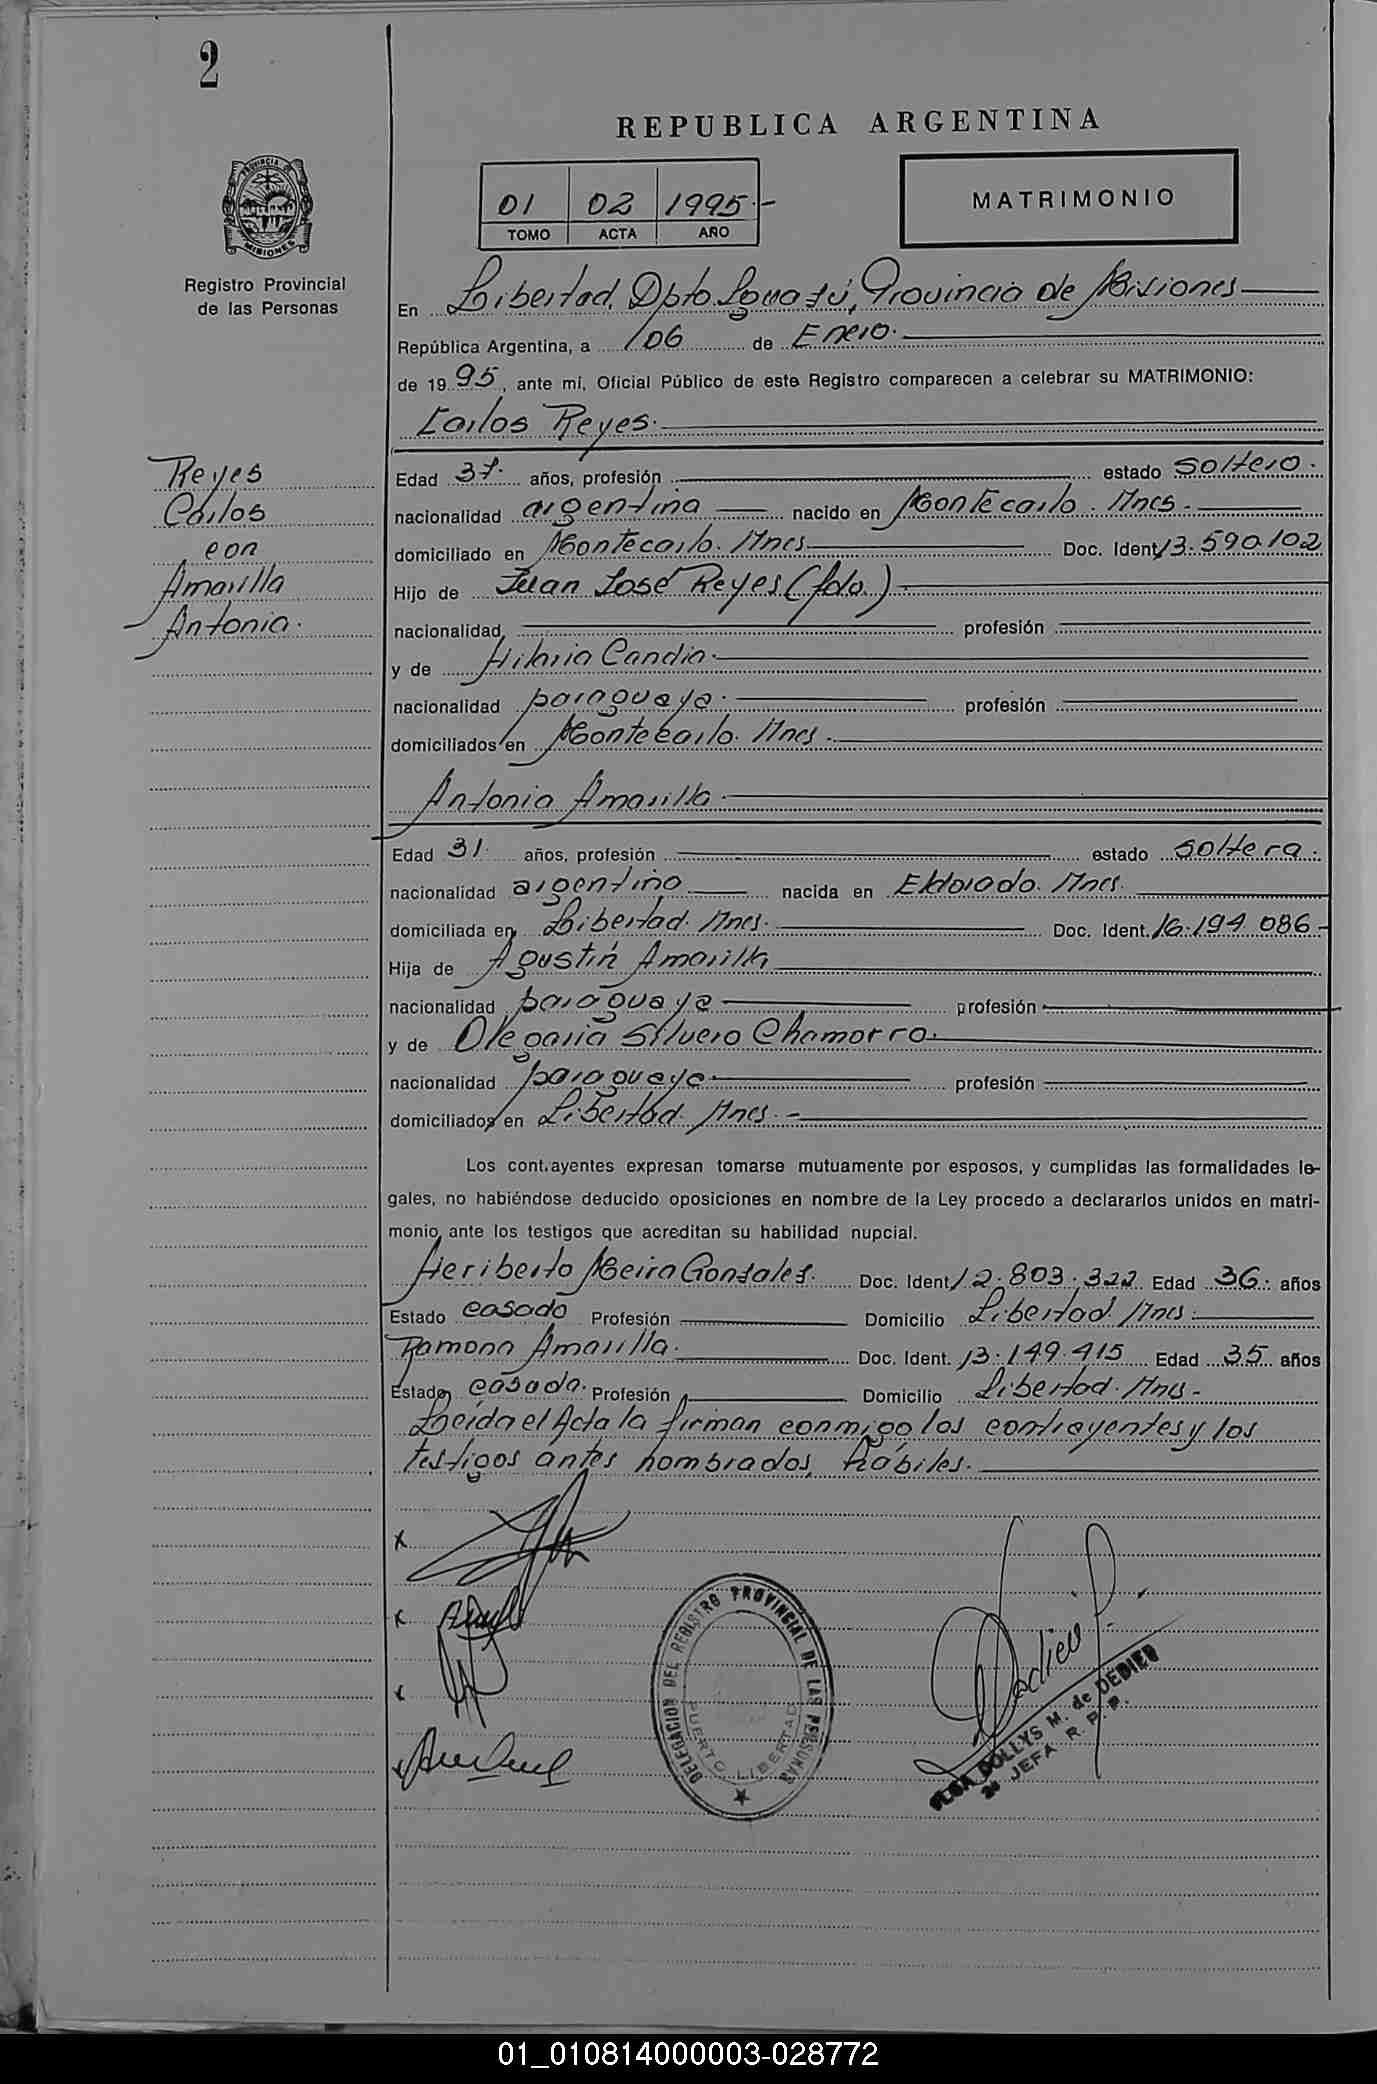 2
REPUBLICA ARGENTINA
01 02 1995.-
TOMO ACTA AÑO
MATRIMONIO
PROVINCIA DE
MISIONES
Registro Provincial
de las Personas
En Libertad, Dpto. Iguazú, Provincia de Misiones
República Argentina, a 06 de Enero.
de 1995, ante mí, Oficial Público de este Registro comparecen a celebrar su MATRIMONIO:
Carlos Reyes.
Reyes
Carlos
con
Amarilla
Antonia.
Edad 37. años, profesión estado soltero.
nacionalidad argentina nacido en Montecarlo. Mnes.
domiciliado en Montecarlo. Mnes Doc. Ident. 13.590.102
Hijo de Juan José Reyes (fdo.)
nacionalidad profesión
y de Hilaria Candia.
nacionalidad paraguaya. profesión
domiciliados en Montecarlo. Mnes.
Antonia Amarilla.
Edad 31. años, profesión estado soltera.
nacionalidad argentina nacida en Eldorado. Mnes.
domiciliada en Libertad. Mnes. Doc. Ident. 16.194.086.-
Hija de Agustín Amarilla
nacionalidad paraguaya profesión
y de Olegaria Silvero Chamorro.
nacionalidad paraguaya. profesión
domiciliados en Libertad. Mnes.-
Los contrayentes expresan tomarse mutuamente por esposos, y cumplidas las formalidades le-
gales, no habiéndose deducido oposiciones en nombre de la Ley procedo a declararlos unidos en matri-
monio ante los testigos que acreditan su habilidad nupcial.
Heriberto Meira Gonsales. Doc. Ident. 12.803.322 Edad 36. años
Estado casado Profesión Domicilio Libertad. Mnes.
Ramona Amarilla. Doc. Ident. 13.149.415 Edad 35 años
Estado casada. Profesión Domicilio Libertad. Mnes-
Leída el Acta la firman conmigo los contrayentes y los
testigos antes nombrados, hábiles.
DELEGACION DEL REGISTRO PROVINCIAL DE LAS PERSONAS
PUERTO LIBERTAD
Dedieu
DOLLYS M. de DEDIEU
JEFA R. P. P.
01_010814000003-028772